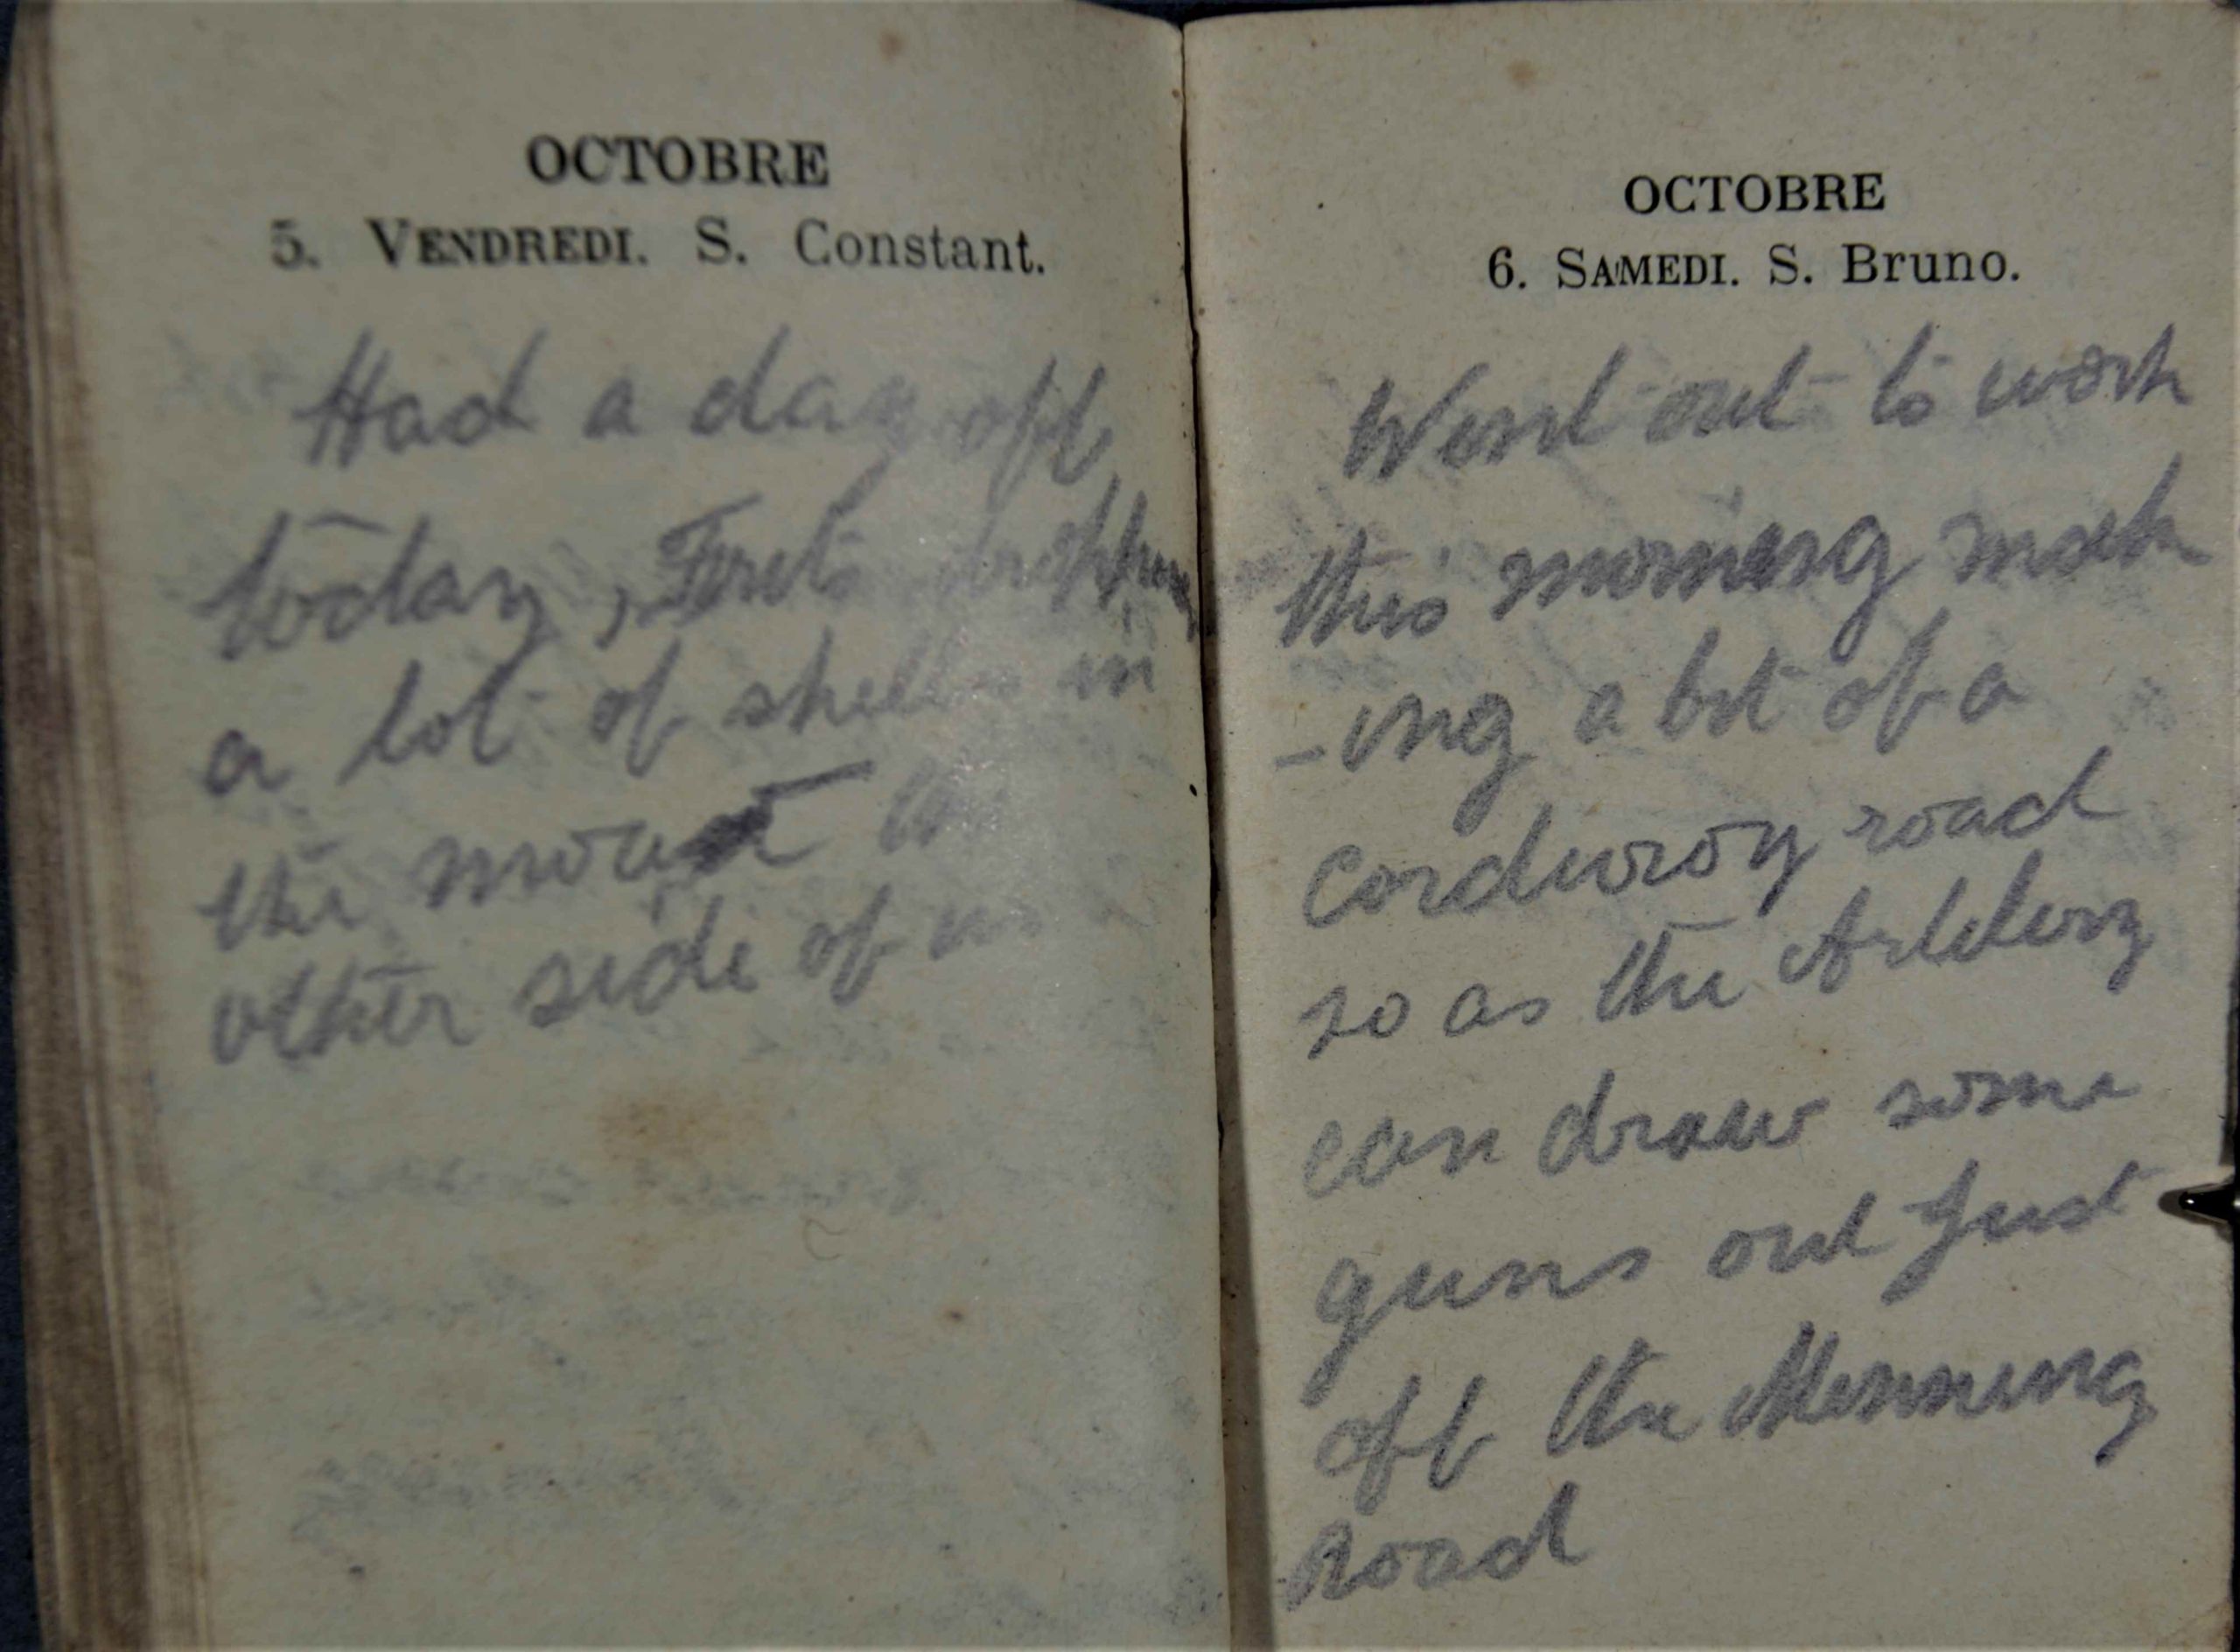 OCTOBRE
5. VENDREDI. S. Constant.
Had a day off
today, Fritz dropping
a lot of shells in
the moat the
other side of us
OCTOBRE
6. SAMEDI. S. Bruno.
Went out to work
this morning mak
-ing a bit of a
corduroy road
so as the Artillery
can draw some
guns out Just
off the Menning
Road